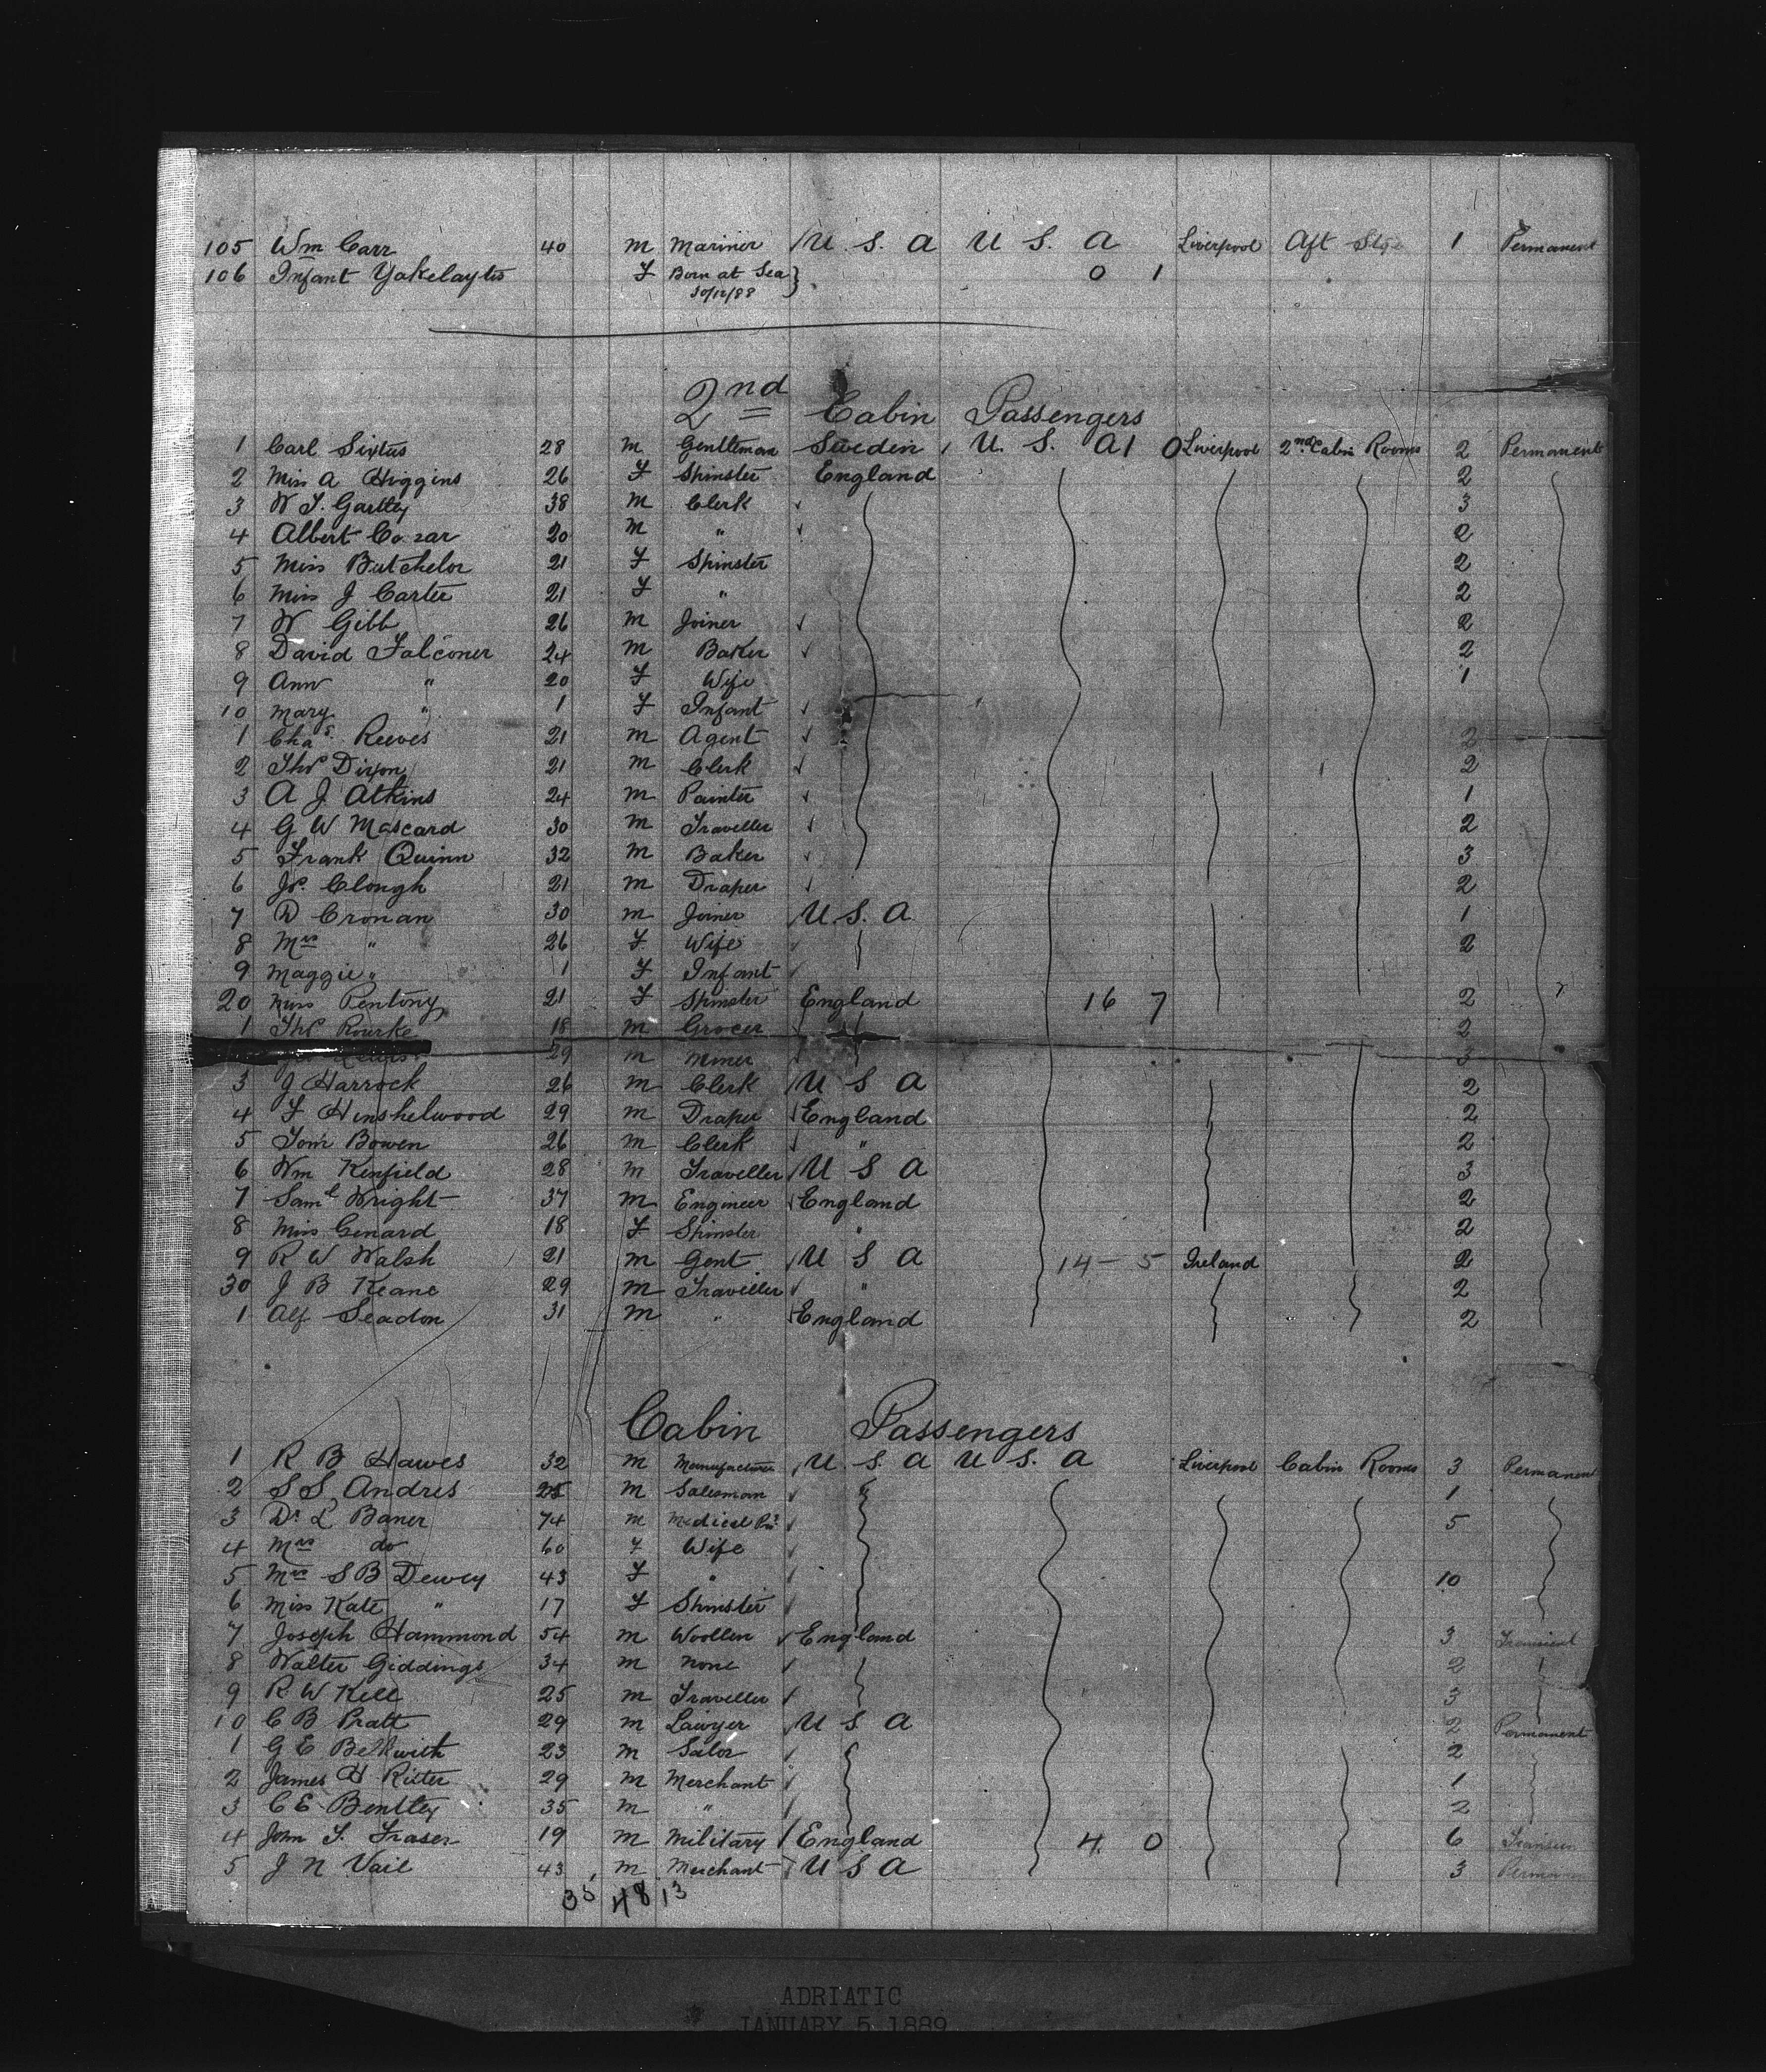 105 Wm Carr 40 m Mariner U. S. A U S. A Liverpool Aft Stge 1 Permanent
106 Infant Yakelaytis F Born at Sea } 0 1
30/12/88
2nd Cabin Passengers
1 Carl Sixtus 28 m Gentleman Sweden U. S. A 1 0 Liverpool 2nd Cabin Rooms 2 Permanent
2 Miss A Higgins 26 F Spinster England 2
3 W T. Gartley 38 m Clerk 3
4 Albert Cozar 20 m " 2
5 Miss Butchelor 21 F Spinster 2
6 Miss J Carter 21 F " 2
7 W Gibb 26 m Joiner 2
8 David Falconer 24 m Baker 2
9 Ann " 20 F Wife 1
10 Mary " 1 F Infant
1 Chas Reeves 21 m Agent 2
2 Thos Dixon 21 m Clerk 2
3 A J Atkins 24 m Painter 1
4 G W Mascard 30 m Traveller 2
5 Frank Quinn 32 m Baker 3
6 Js. Clough 21 m Draper 2
7 D Cronan 30 m Joiner U. S. A 1
8 Mrs " 26 F Wife 2
9 Maggie " 1 F Infant
20 Miss Pentony 21 F Spinster England 16 7 2
1 Thos Rourke 18 m Grocer 2
29 m Miner 3
3 J Harrock 26 m Clerk U S A 2
4 F Hinshelwood 29 m Draper England 2
5 Tom Bowen 26 m Clerk " 2
6 Wm Kenfield 28 m Traveller U S A 3
7 Saml Wright 37 m Engineer England 2
8 Miss Genard 18 F Spinster " 2
9 R W Walsh 21 m Gent U S A 14 - 5 Ireland 2
30 J B Keane 29 m Traveller " 2
1 Alf Seadon 31 m " England 2
Cabin Passengers
1 R B Hawes 32 m Manufacturer U. S. A U. S. A Liverpool Cabin Rooms 3 Permanent
2 S S Andres 25 m Salesman 1
3 Dr L Baner 74 m Medical 5
4 Mrs do 60 F Wife
5 Mrs S B Dewey 43 F " 10
6 Miss Kate " 17 F Spinster
7 Joseph Hammond 54 m Woollen England 3 Transient
8 Walter Giddings 34 m None 2
9 R W Kell 25 m Traveller 3
10 C B Pratt 29 m Lawyer U S A 2 Permanent
1 G E Beckwith 23 m Salor 2
2 James H Ritter 29 m Merchant 1
3 C E Bentley 35 m " 2
4 John T. Fraser 19 m Military England 4. 0 6
5 J N Vail 43 m Merchant U S A 3
35 48 13
ADRIATIC
JANUARY 5 1889